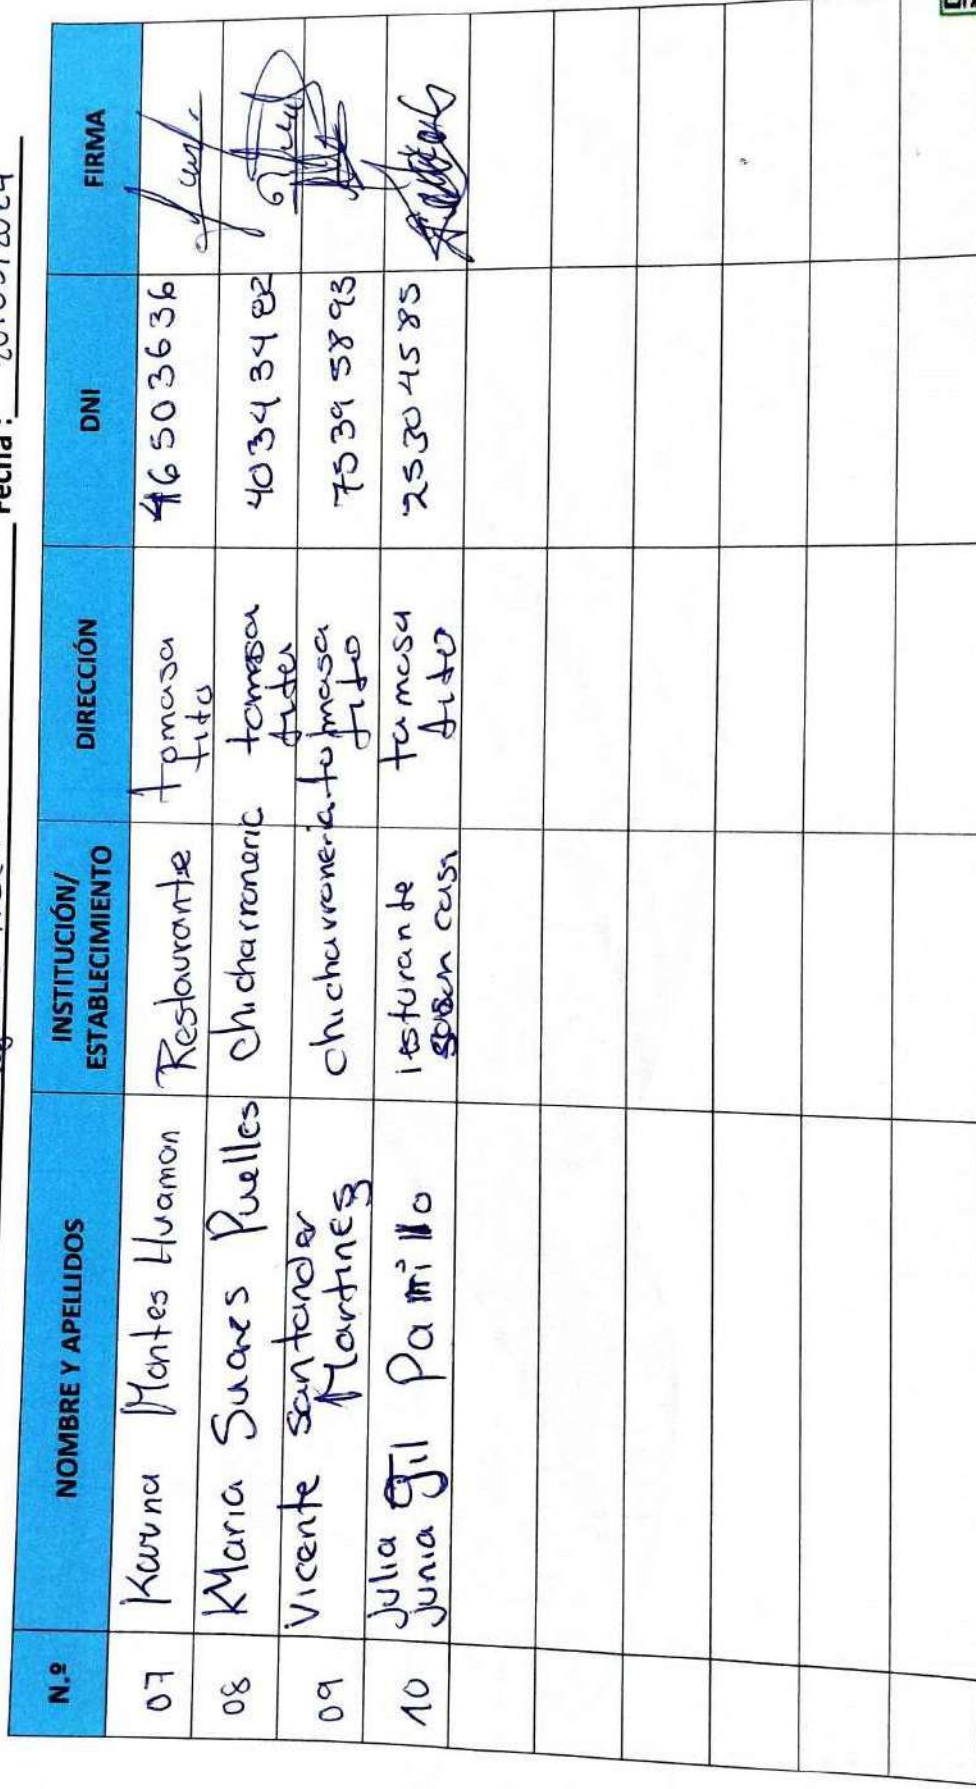 Fecha :
N.º NOMBRE Y APELLIDOS INSTITUCIÓN/ ESTABLECIMIENTO DIRECCIÓN DNI FIRMA
07 Karina Montes Huaman Restaurante tomasa tito 46503636
08 Maria Suares Puelles chicharroneric tomasa 40343482
09 Vicente santander Martines chicharroneria tomasa tito 75395893
10 Julia Junia Gil casa tomasa tito 25304585